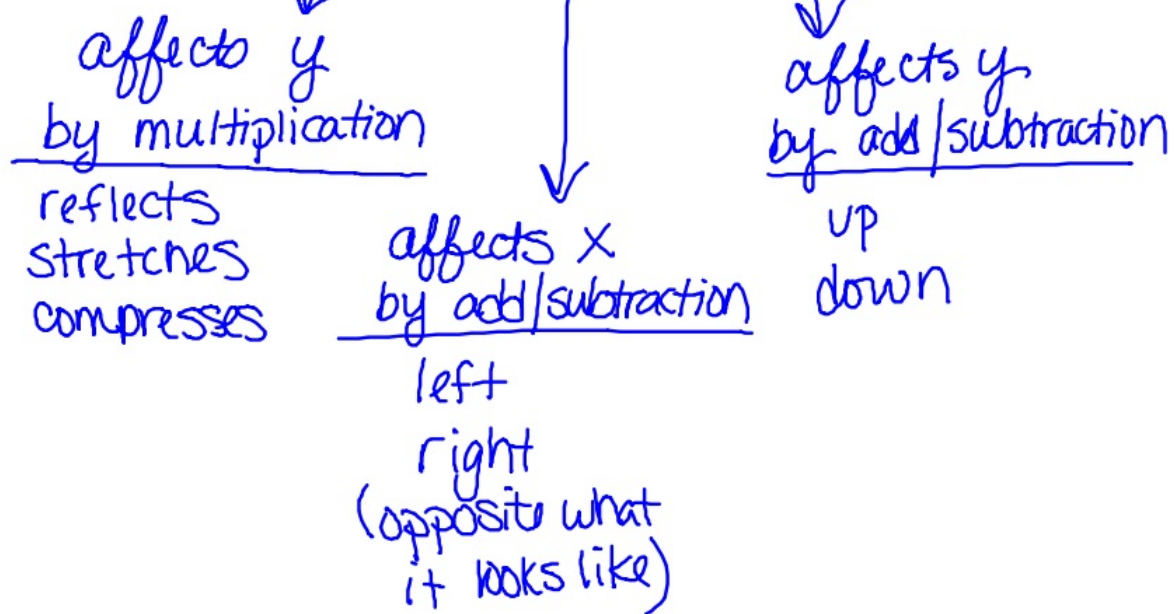 affects y
by multiplication
reflects
stretches
compresses
affects x
by add/subtraction
left
right
(opposite what
it looks like)
affects y
by add/subtraction
up
down